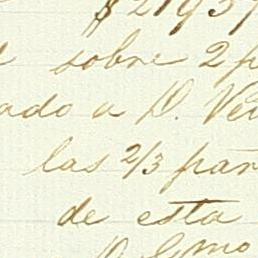 $ 2193
sobre 2 p
ado a D. Ve
las 2/3 par
de esta
D. Gmo